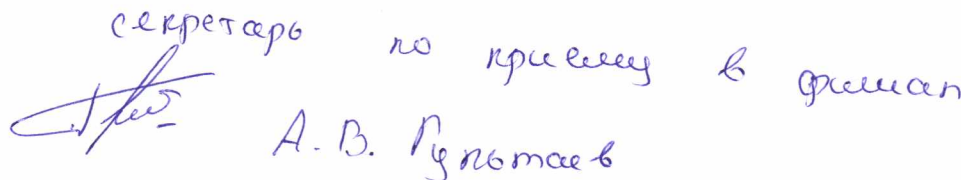 секретарь по приему в филиал
А.В. Гультаев